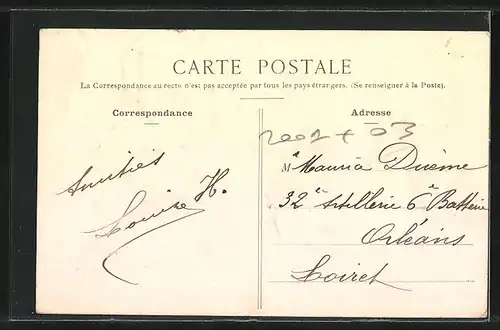 CARTE POSTALE
La Correspondance au recto n'est pas acceptée par tous les pays étrangers. (Se renseigner à la Poste).
Correspondance
Adresse
Amitiés
Louise H.
2001 + 03
M
32e Artillerie 6e Batterie
Orléans
Loiret